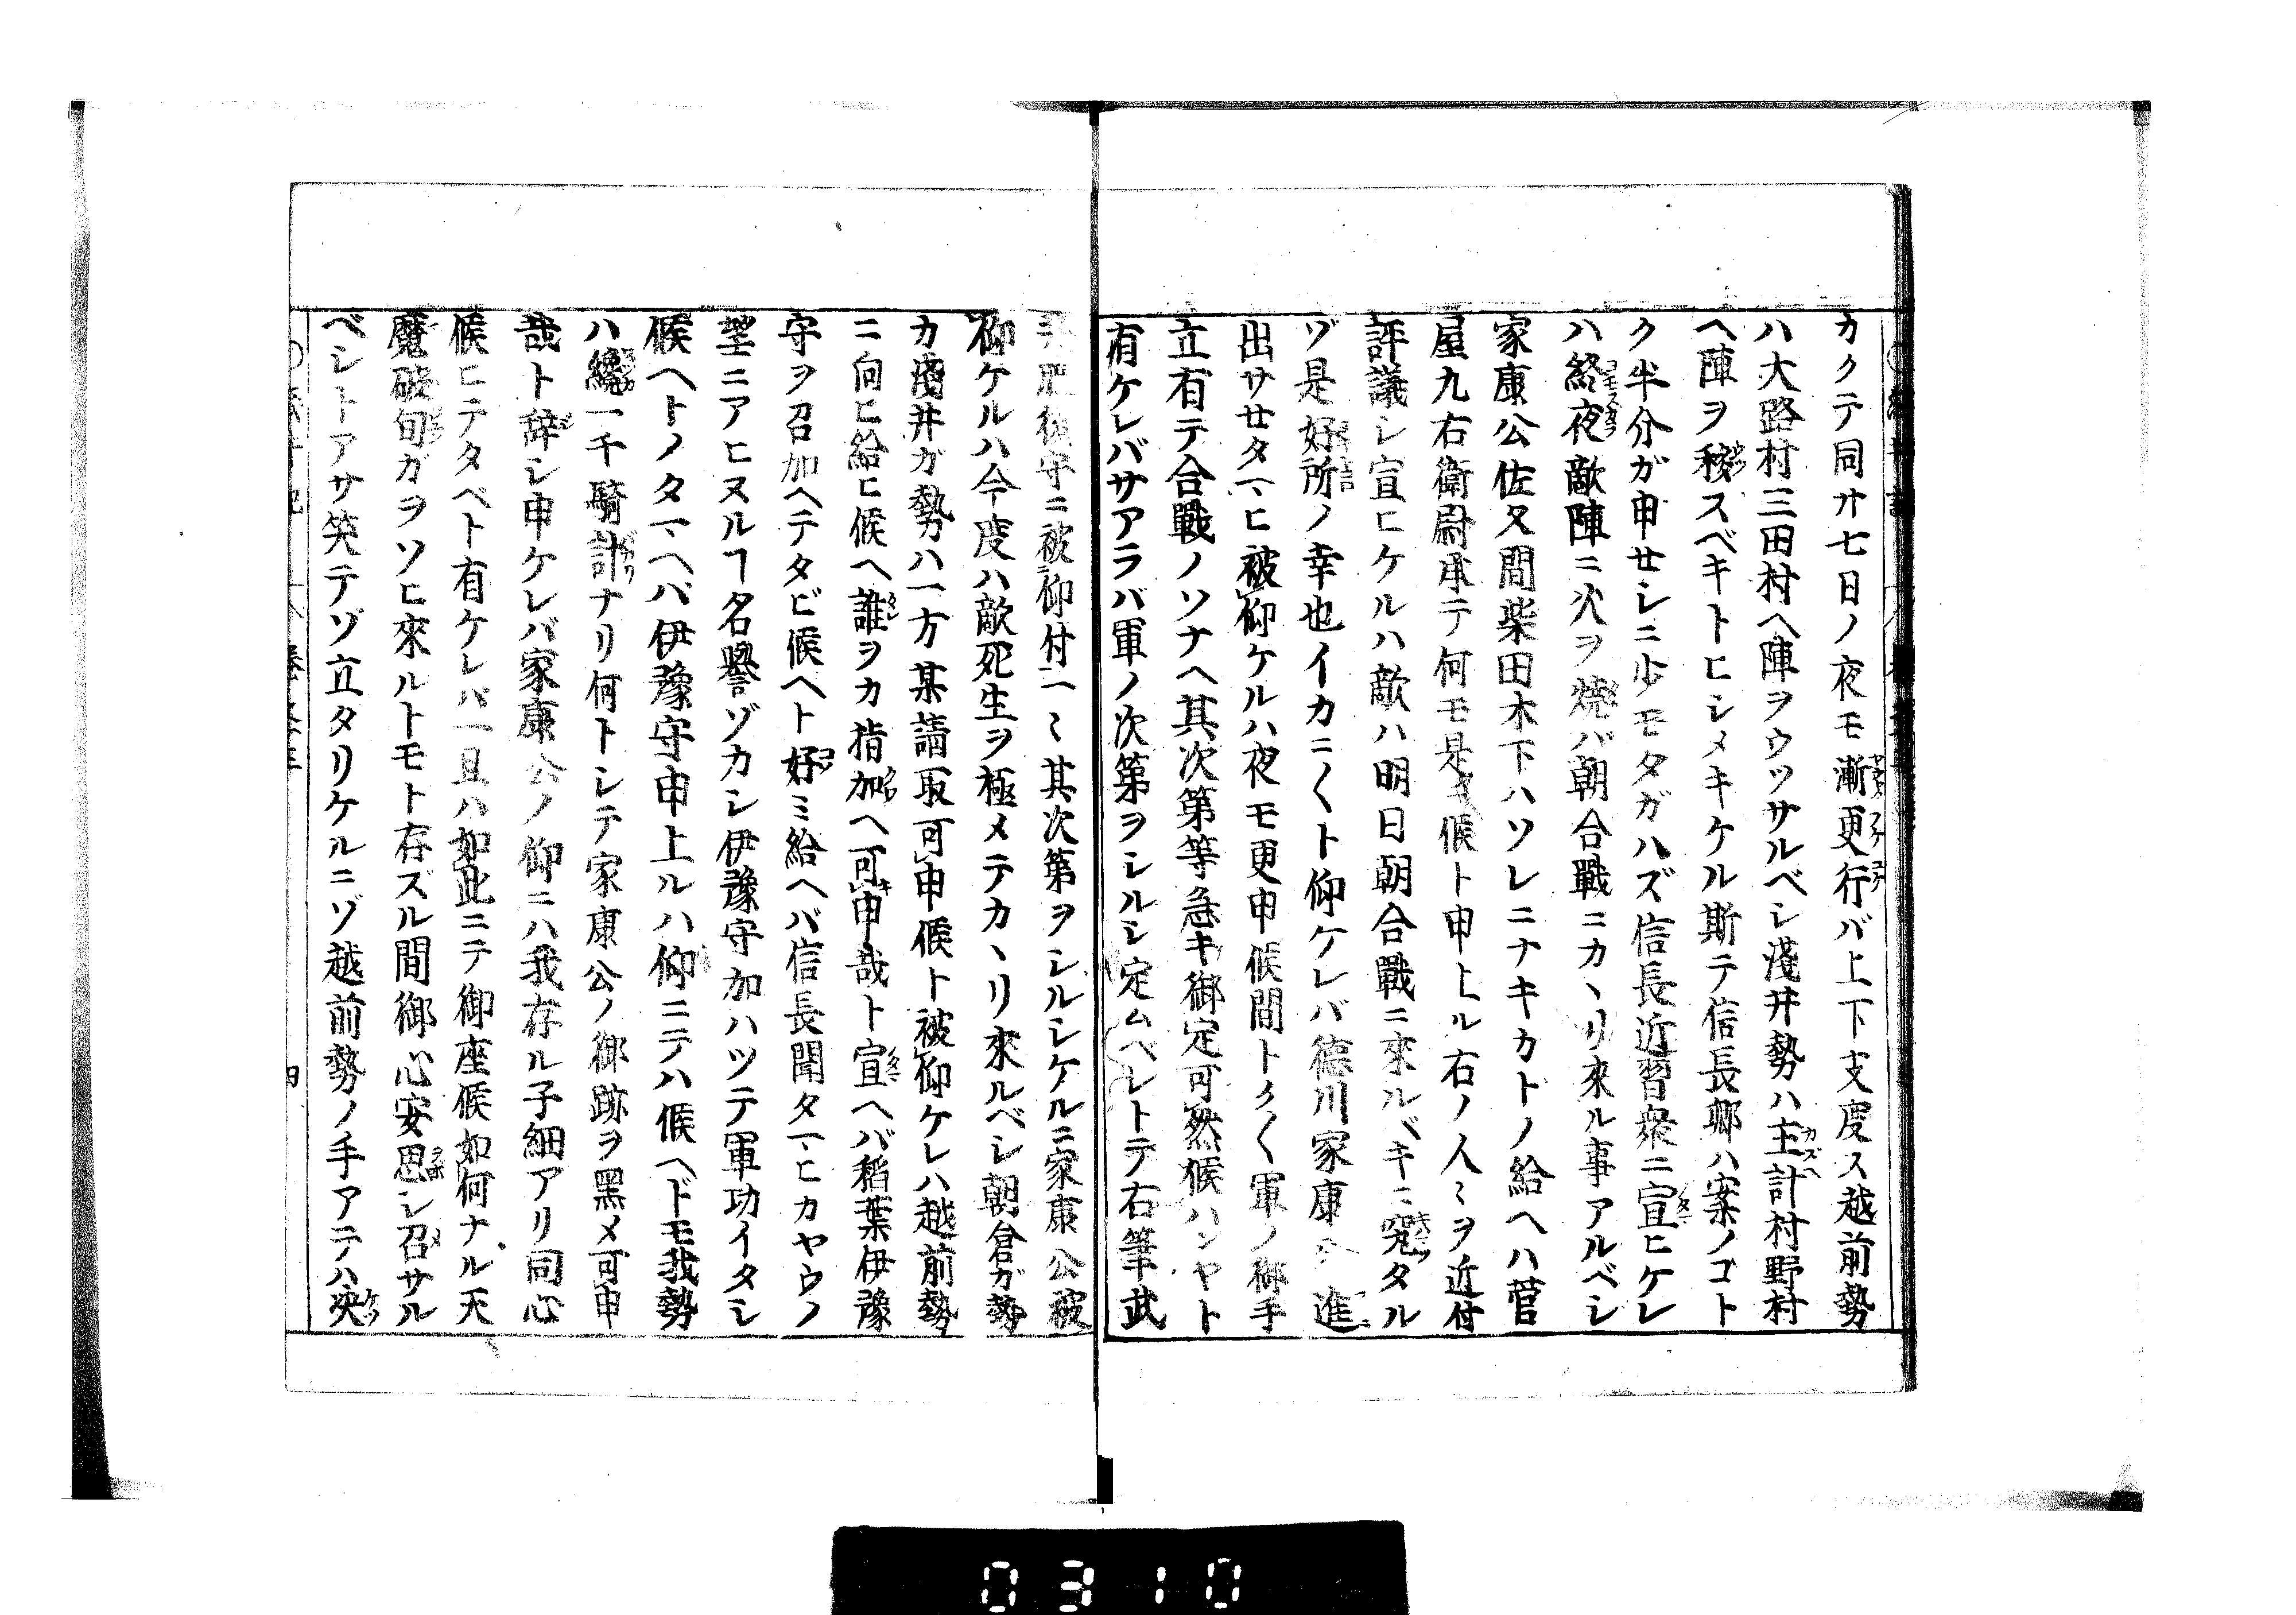 カクテ同廿七日ノ夜モ漸更行バ上下支度ス越前勢
ハ大路村三田村ヘ陣ヲウツサルベシ淺井勢ハ主計村野村
ヘ陣ヲ移スベキトヒシメキケル斯テ信長卿ハ案ノゴト
ク半分ガ申せシニ少モタガハズ信長近習衆ニ宣ヒケレ
ハ終夜敵陣ニ火ヲ焼バ朝合戰ニカヽリ來ル事アルベシ
家康公佐久間柴田木下ハソレニナキカトノ給ヘハ菅
屋九右衛尉承テ何モ是ニ候ト申上ル右ノ人〻ヲ近付
評議シ宣ヒケルハ敵ハ明日朝合戰ニ來ルベキニ究タル
ゾ是好所ノ幸也イカニ〱ト仰ケレバ徳川家康公進
出サせタマヒ被仰ケルハ夜モ更申候間トク〱軍ノ御手
立有テ合戰ノソナヘ其次第等急キ御定可然候ハンヤト
有ケレバサアラバ軍ノ次第ヲシルシ定ムベシトテ右筆武
井肥後守ニ被仰付一〻其次第ヲシルシケルニ家康公被
仰ケルハ今度ハ敵死生ヲ極メテカヽリ來ルベシ朝倉ガ勢
カ淺井ガ勢カ一方某請取可申候ト被仰ケレハ越前勢
ニ向ヒ給ヒ候ヘ誰ヲカ指加ヘ可申哉ト宣ヘバ稻葉伊豫
守ヲ召加ヘテタビ候ヘト好ミ給ヘバ信長聞タマヒカヤウノ
望ニアヒヌルヿ名譽ゾカシ伊豫守加ハツテ軍功イタシ
候ヘトノタマヘバ伊豫守申上ルハ仰ニテハ候ヘドモ我勢
ハ纔一千騎計ナリ何トシテ家康公ノ御跡ヲ黑メ可申
哉ト辞シ申ケレバ家康公ノ仰ニハ我存ル子細アリ同心
候ヒテタベト有ケレバ一旦ハ如此ニテ御座候如何ナル天
魔破旬カヲソヒ來ルトモト存ズル間御心安思シ召サル
ベシトアサ笑テゾ立タリケルニゾ越前勢ノ手アテハ決
四
0310